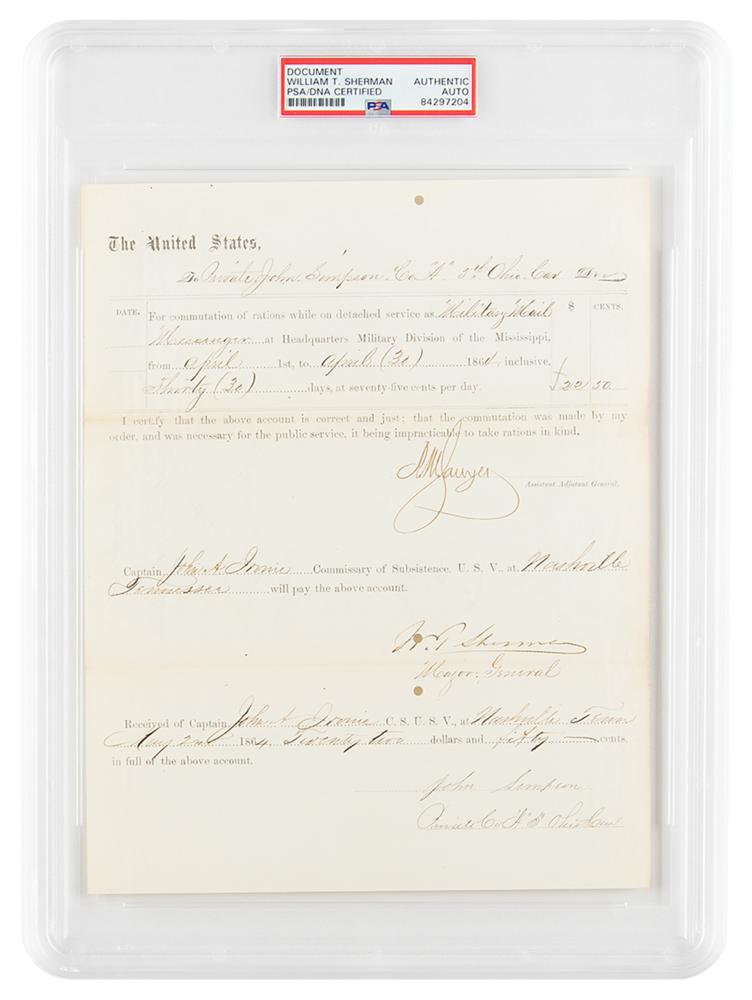 DOCUMENT
WILLIAM T. SHERMAN AUTHENTIC
PSA/DNA CERTIFIED AUTO
PSA 84297204
The United States,
To Private John Simpson Co "A" 5th Ohio Cav Dr
DATE. For commutation of rations while on detached service as Military Mail $ CENTS.
Messenger at Headquarters Military Division of the Mississippi,
from April 1st, to April (30) 1864 inclusive.
Thirty (30) days, at seventy-five cents per day. 22 50
I certify that the above account is correct and just; that the commutation was made by my
order, and was necessary for the public service, it being impracticable to take rations in kind.
Sawyer
Assistant Adjutant General.
Captain John A Commissary of Subsistence, U. S. V., at Nashville
Tennessee will pay the above account.
W. T. Sherman
Major General
Received of Captain John A C. S. U. S. V., at Nashville Tenn
May 2nd 1864, Twenty two dollars and fifty cents,
in full of the above account.
John Simpson
Private Co "A" 5" Ohio Cav